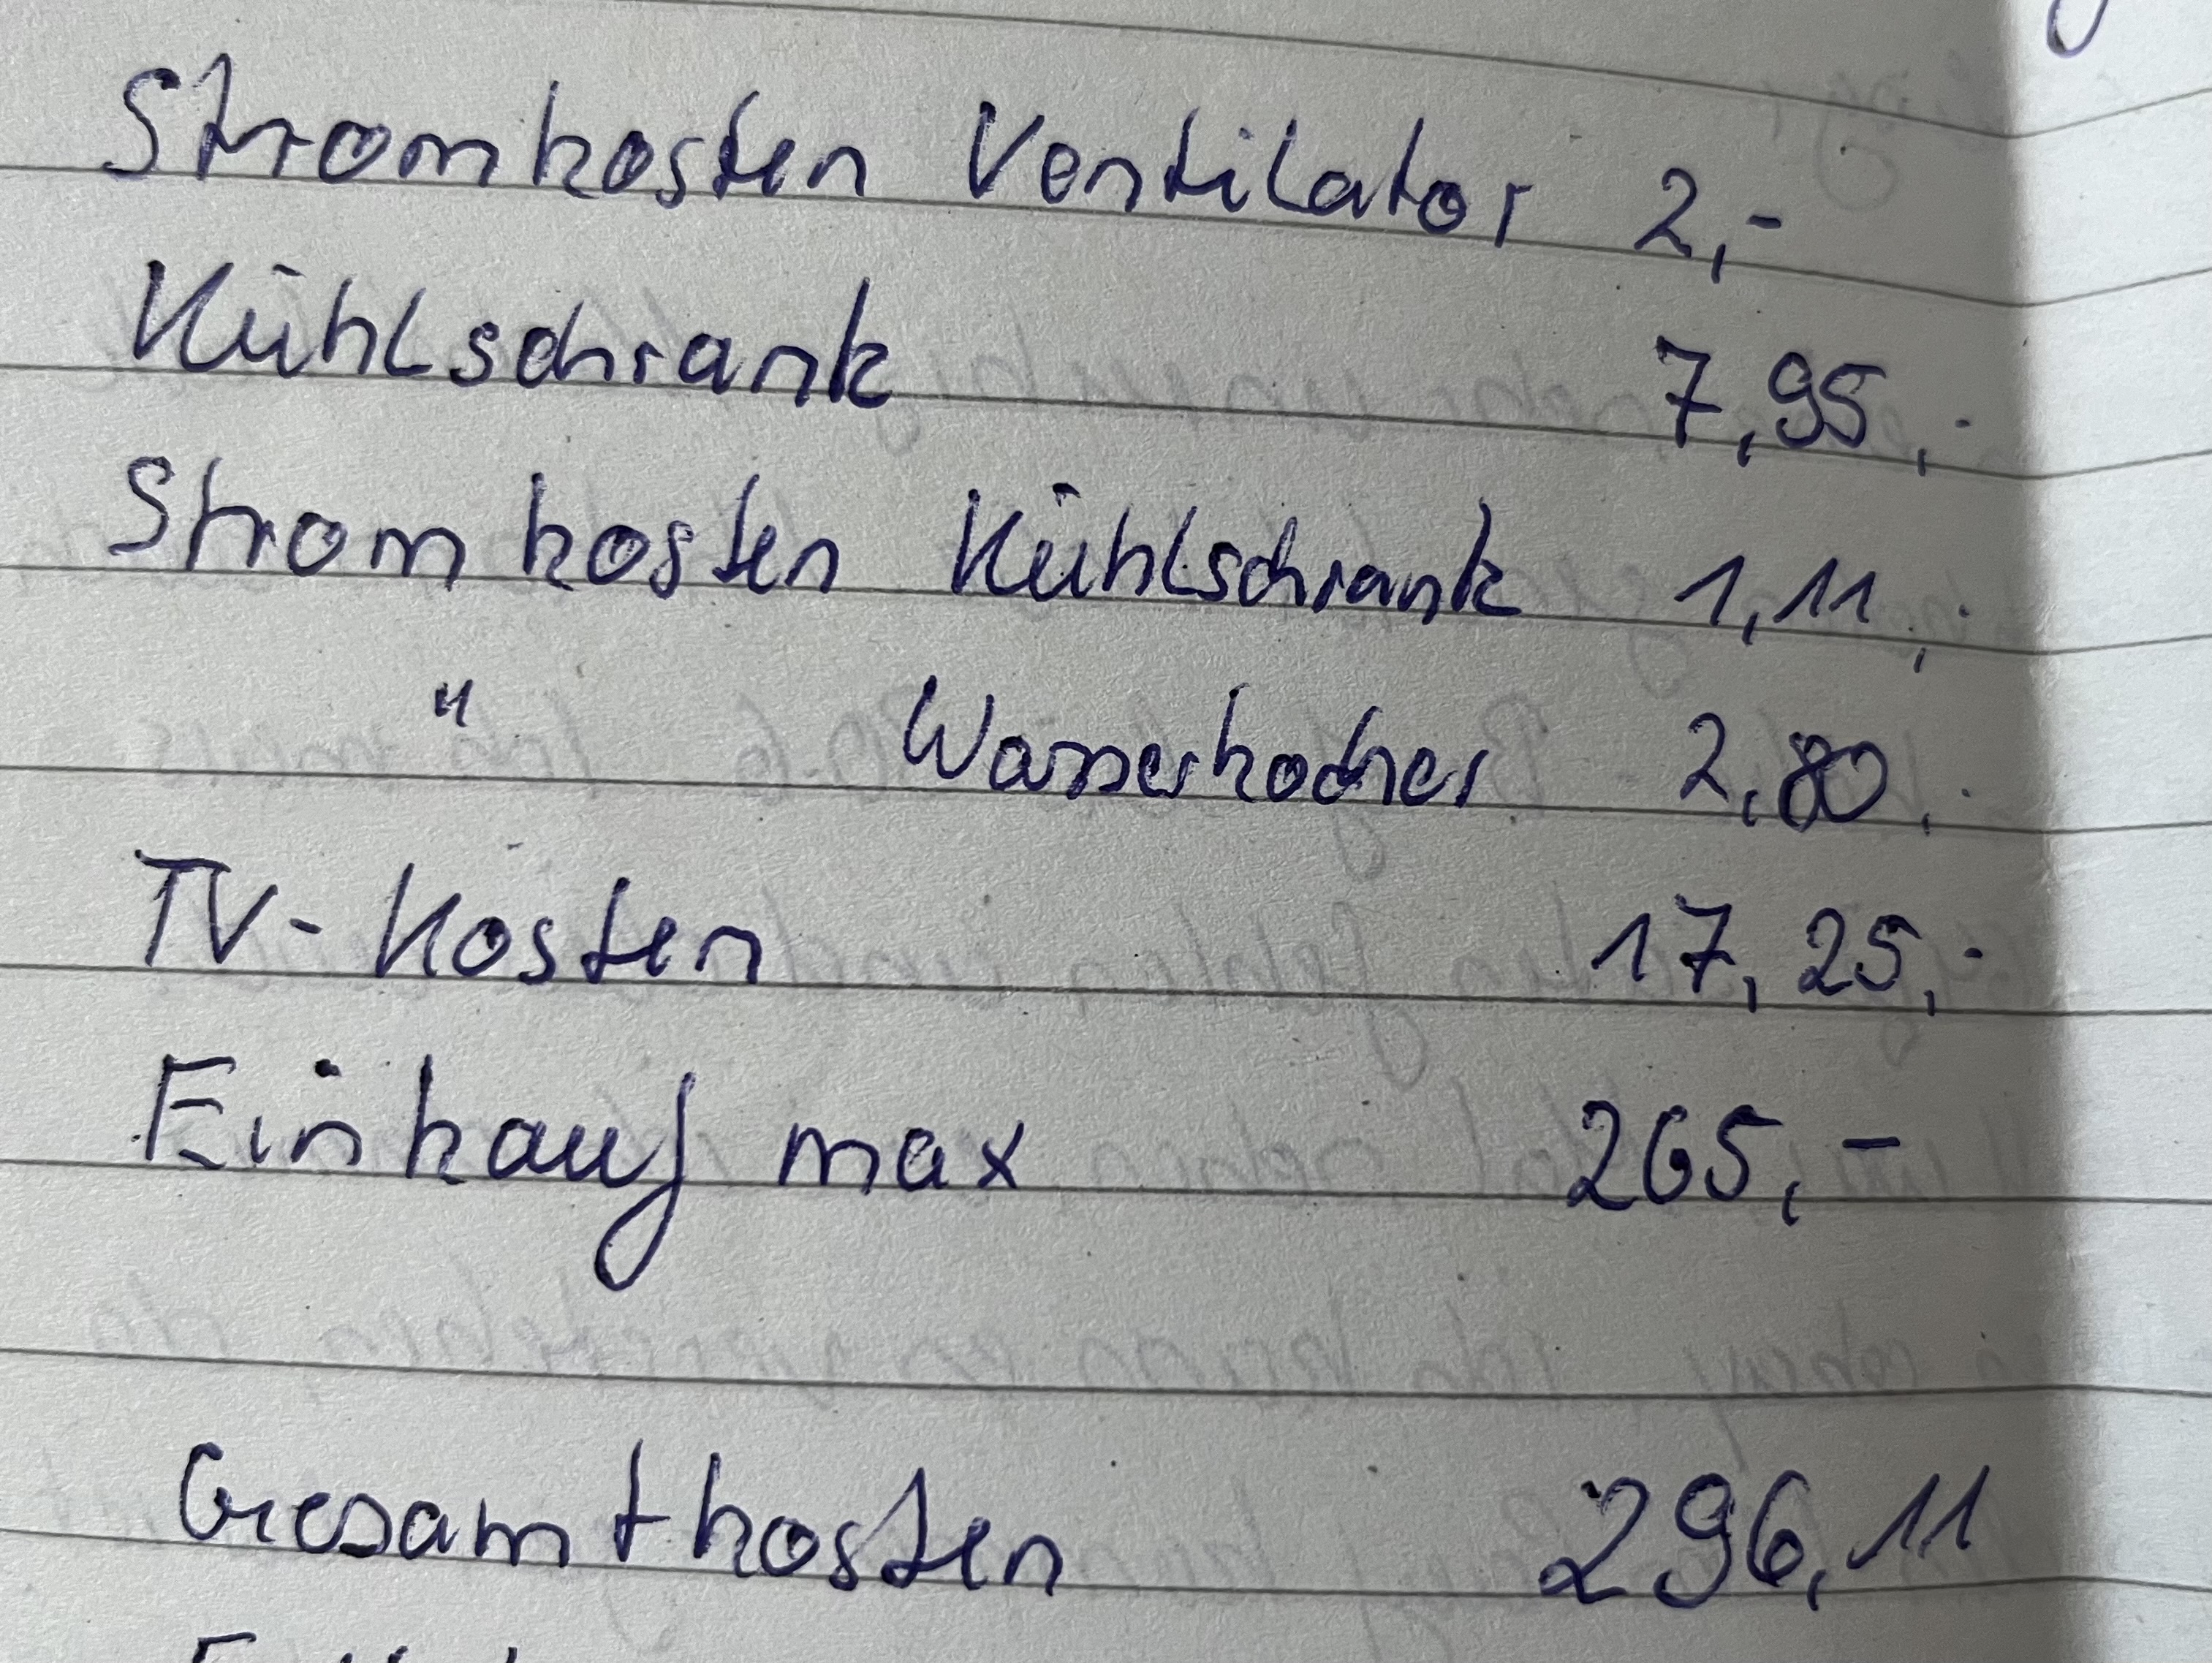 Stromkosten Ventilator 2,-
Kühlschrank 7,95,-
Stromkosten Kühlschrank 1,11,-
" Wasserkocher 2,80,-
TV-Kosten 17,25,-
Einkauf max 265,-
Gesamtkosten 296,11